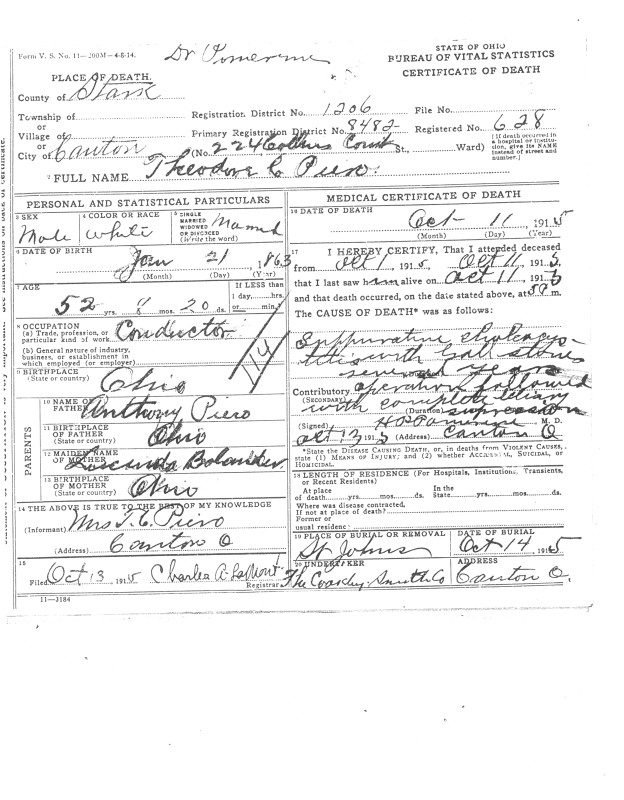 Form V. S. No. 11—200M—4-8-14.
Dr Pomerene
STATE OF OHIO
BUREAU OF VITAL STATISTICS
CERTIFICATE OF DEATH
PLACE OF DEATH.
County of Stark
Township of
or
Village of
or
City of Canton
Registration District No. 1206 File No.
Primary Registration District No. 8482 Registered No. 628
(No. 224 Collins Court St., Ward)
(If death occurred in a hospital or institution, give its NAME instead of street and number.)
2 FULL NAME Theodore C Piero.
PERSONAL AND STATISTICAL PARTICULARS
3 SEX Male
4 COLOR OR RACE White
5 SINGLE MARRIED WIDOWED OR DIVORCED (Write the word) Married
6 DATE OF BIRTH Jan 21 1863
(Month) (Day) (Year)
7 AGE 52 yrs. mos. 20 ds.
If LESS than 1 day,....hrs. or....min.?
8 OCCUPATION
(a) Trade, profession, or particular kind of work Conductor
(b) General nature of industry, business, or establishment in which employed (or employer)
114
9 BIRTHPLACE
(State or country) Ohio
PARENTS
10 NAME OF FATHER Anthony Piero
11 BIRTHPLACE OF FATHER
(State or country) Ohio
12 MAIDEN NAME OF MOTHER
13 BIRTHPLACE OF MOTHER
(State or country) Ohio
14 THE ABOVE IS TRUE TO THE BEST OF MY KNOWLEDGE
(Informant) Mrs T. C. Piero
(Address) Canton O
15
Filed Oct 13, 1915 Charles A. LaMont Registrar
11—3184
MEDICAL CERTIFICATE OF DEATH
16 DATE OF DEATH Oct 11, 1915
(Month) (Day) (Year)
17 I HEREBY CERTIFY, That I attended deceased
from Oct 1, 1915, Oct 11, 1915,
that I last saw him alive on Oct 11, 1915
and that death occurred, on the date stated above, at m.
The CAUSE OF DEATH* was as follows:
Suppurative cholecys-
titis with Gall stones
several years
Contributory operation followed
(SECONDARY) with complete biliary
(Duration) suppression
(Signed) H P Pomerene M. D.
Oct 13, 1915 (Address) Canton O
*State the DISEASE CAUSING DEATH, or, in deaths from VIOLENT CAUSES,
state (1) MEANS OF INJURY; and (2) whether ACCIDENTAL, SUICIDAL, or
HOMICIDAL.
18 LENGTH OF RESIDENCE (For Hospitals, Institutions, Transients,
or Recent Residents)
At place of death yrs. mos. ds. In the State yrs. mos. ds.
Where was disease contracted,
If not at place of death?
Former or
usual residence
19 PLACE OF BURIAL OR REMOVAL St Johns
DATE OF BURIAL Oct 14, 1915
20 UNDERTAKER The Coasley-Smith Co
ADDRESS Canton O.